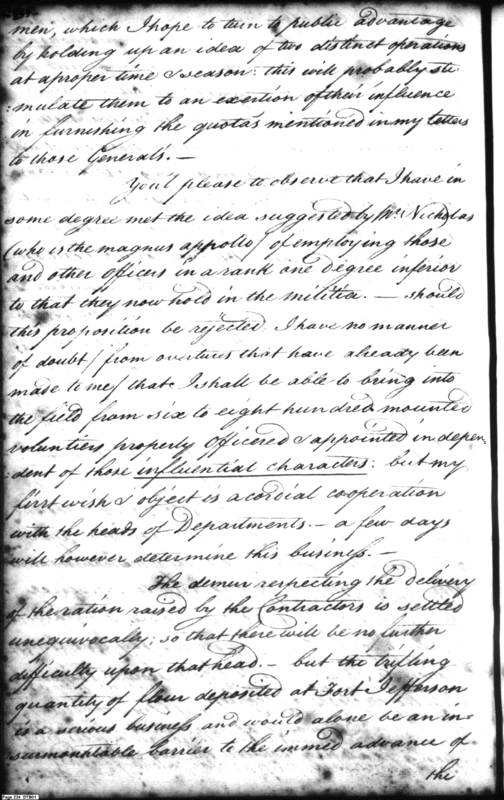 men, which I hope to turn to public advantage
by holding up an idea of two distinct operations
at a proper time & season: this will probably sti-
:mulate them to an exertion of their influence
in furnishing the quota's mentioned in my letters
to those Generals. —
You'l please to observe that I have in
some degree met the idea suggested by Mr. Nicholas
(who is the magnus appollo) of employing those
and other officers in a rank one degree inferior
to that they now hold in the militia. — should
this proposition be rejected I have no manner
of doubt (from overtures that have already been
made to me) that I shall be able to bring into
the field from six to eight hundred mounted
volunteers properly officered & appointed indepen
:dent of those influential characters: but my
first wish & object is a cordial cooperation
with the heads of Departments. — a few days
will however determine this business. —
The demur respecting the delivery
of the ration raised by the Contractors is settled
unequivocally; so that there will be no further
difficulty upon that head. — but the trifling
quantity of flour deposited at Fort Jefferson
is a serious business and would alone be an in-
surmountable barrier to the immed advance of
the